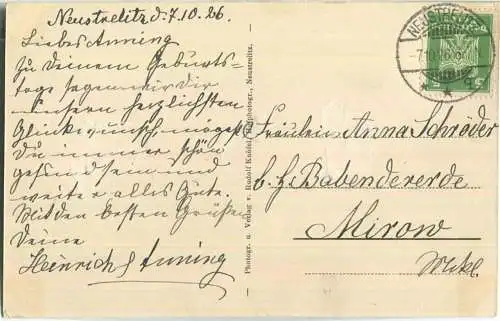 Neustrelitz, d. 7.10.26.
Liebes Anning
Zu Deinem Geburts-
tage sagen wir Dir
unsern herzlichsten
Glückwunsch, mögest
Du immer schön
gesund sein und
weiter alles Gute.
Mit den besten Grüßen
Deine
Heinrich &
Photogr. u. Verlag v. Rudolf Hofphotogr., Neustrelitz.
NEUSTRELITZ
-7.10.26
5
Fräulein Anna Schröder
b. H. Babendererde
Mirow
Meckl.